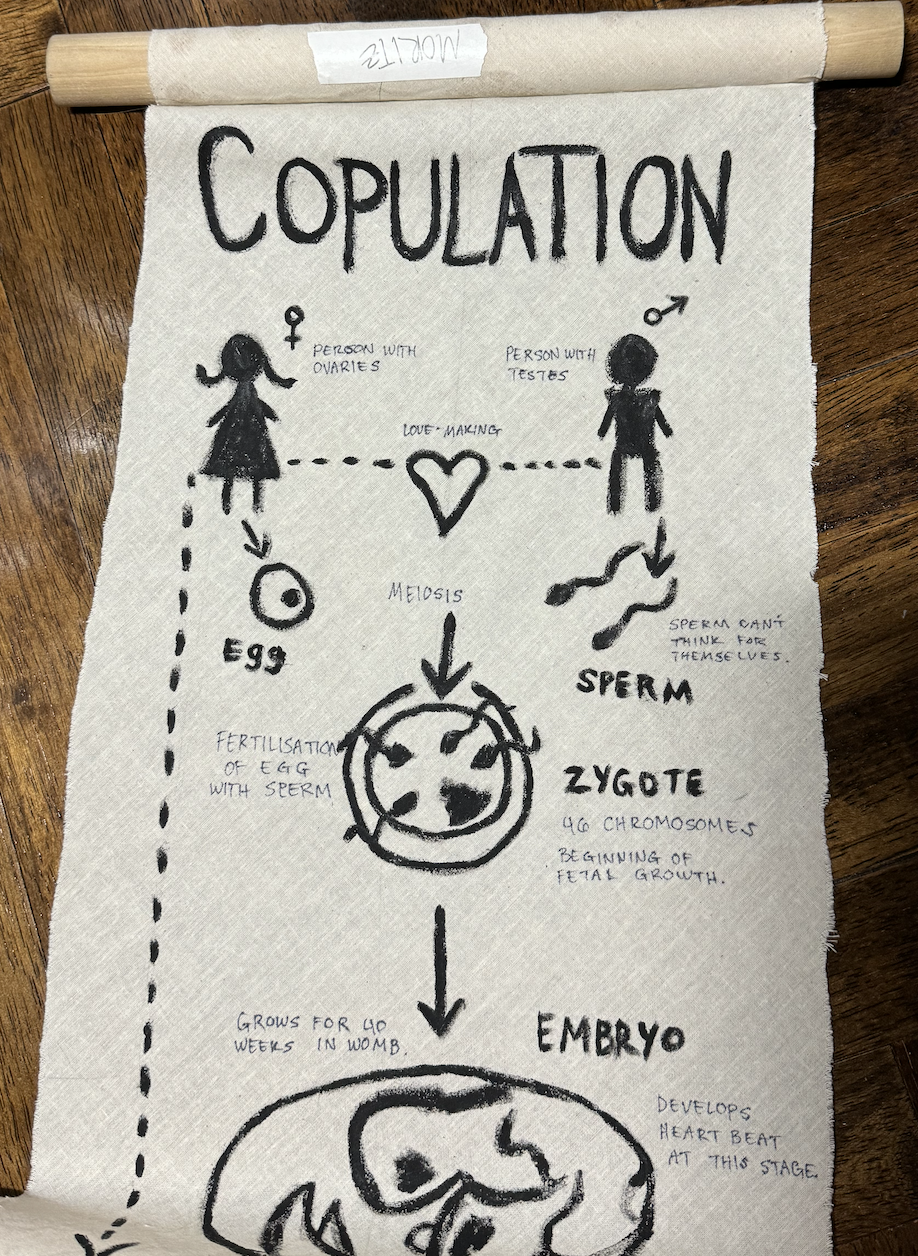 MORITZ
COPULATION
PERSON WITH
OVARIES
PERSON WITH
TESTES
LOVE-MAKING
MEIOSIS
Egg
SPERM CAN'T
THINK FOR
THEMSELVES.
SPERM
FERTILISATION
OF EGG
WITH SPERM
ZYGOTE
46 CHROMOSOMES
BEGINNING OF
FETAL GROWTH.
GROWS FOR 40
WEEKS IN WOMB.
EMBRYO
DEVELOPS
HEART BEAT
AT THIS STAGE